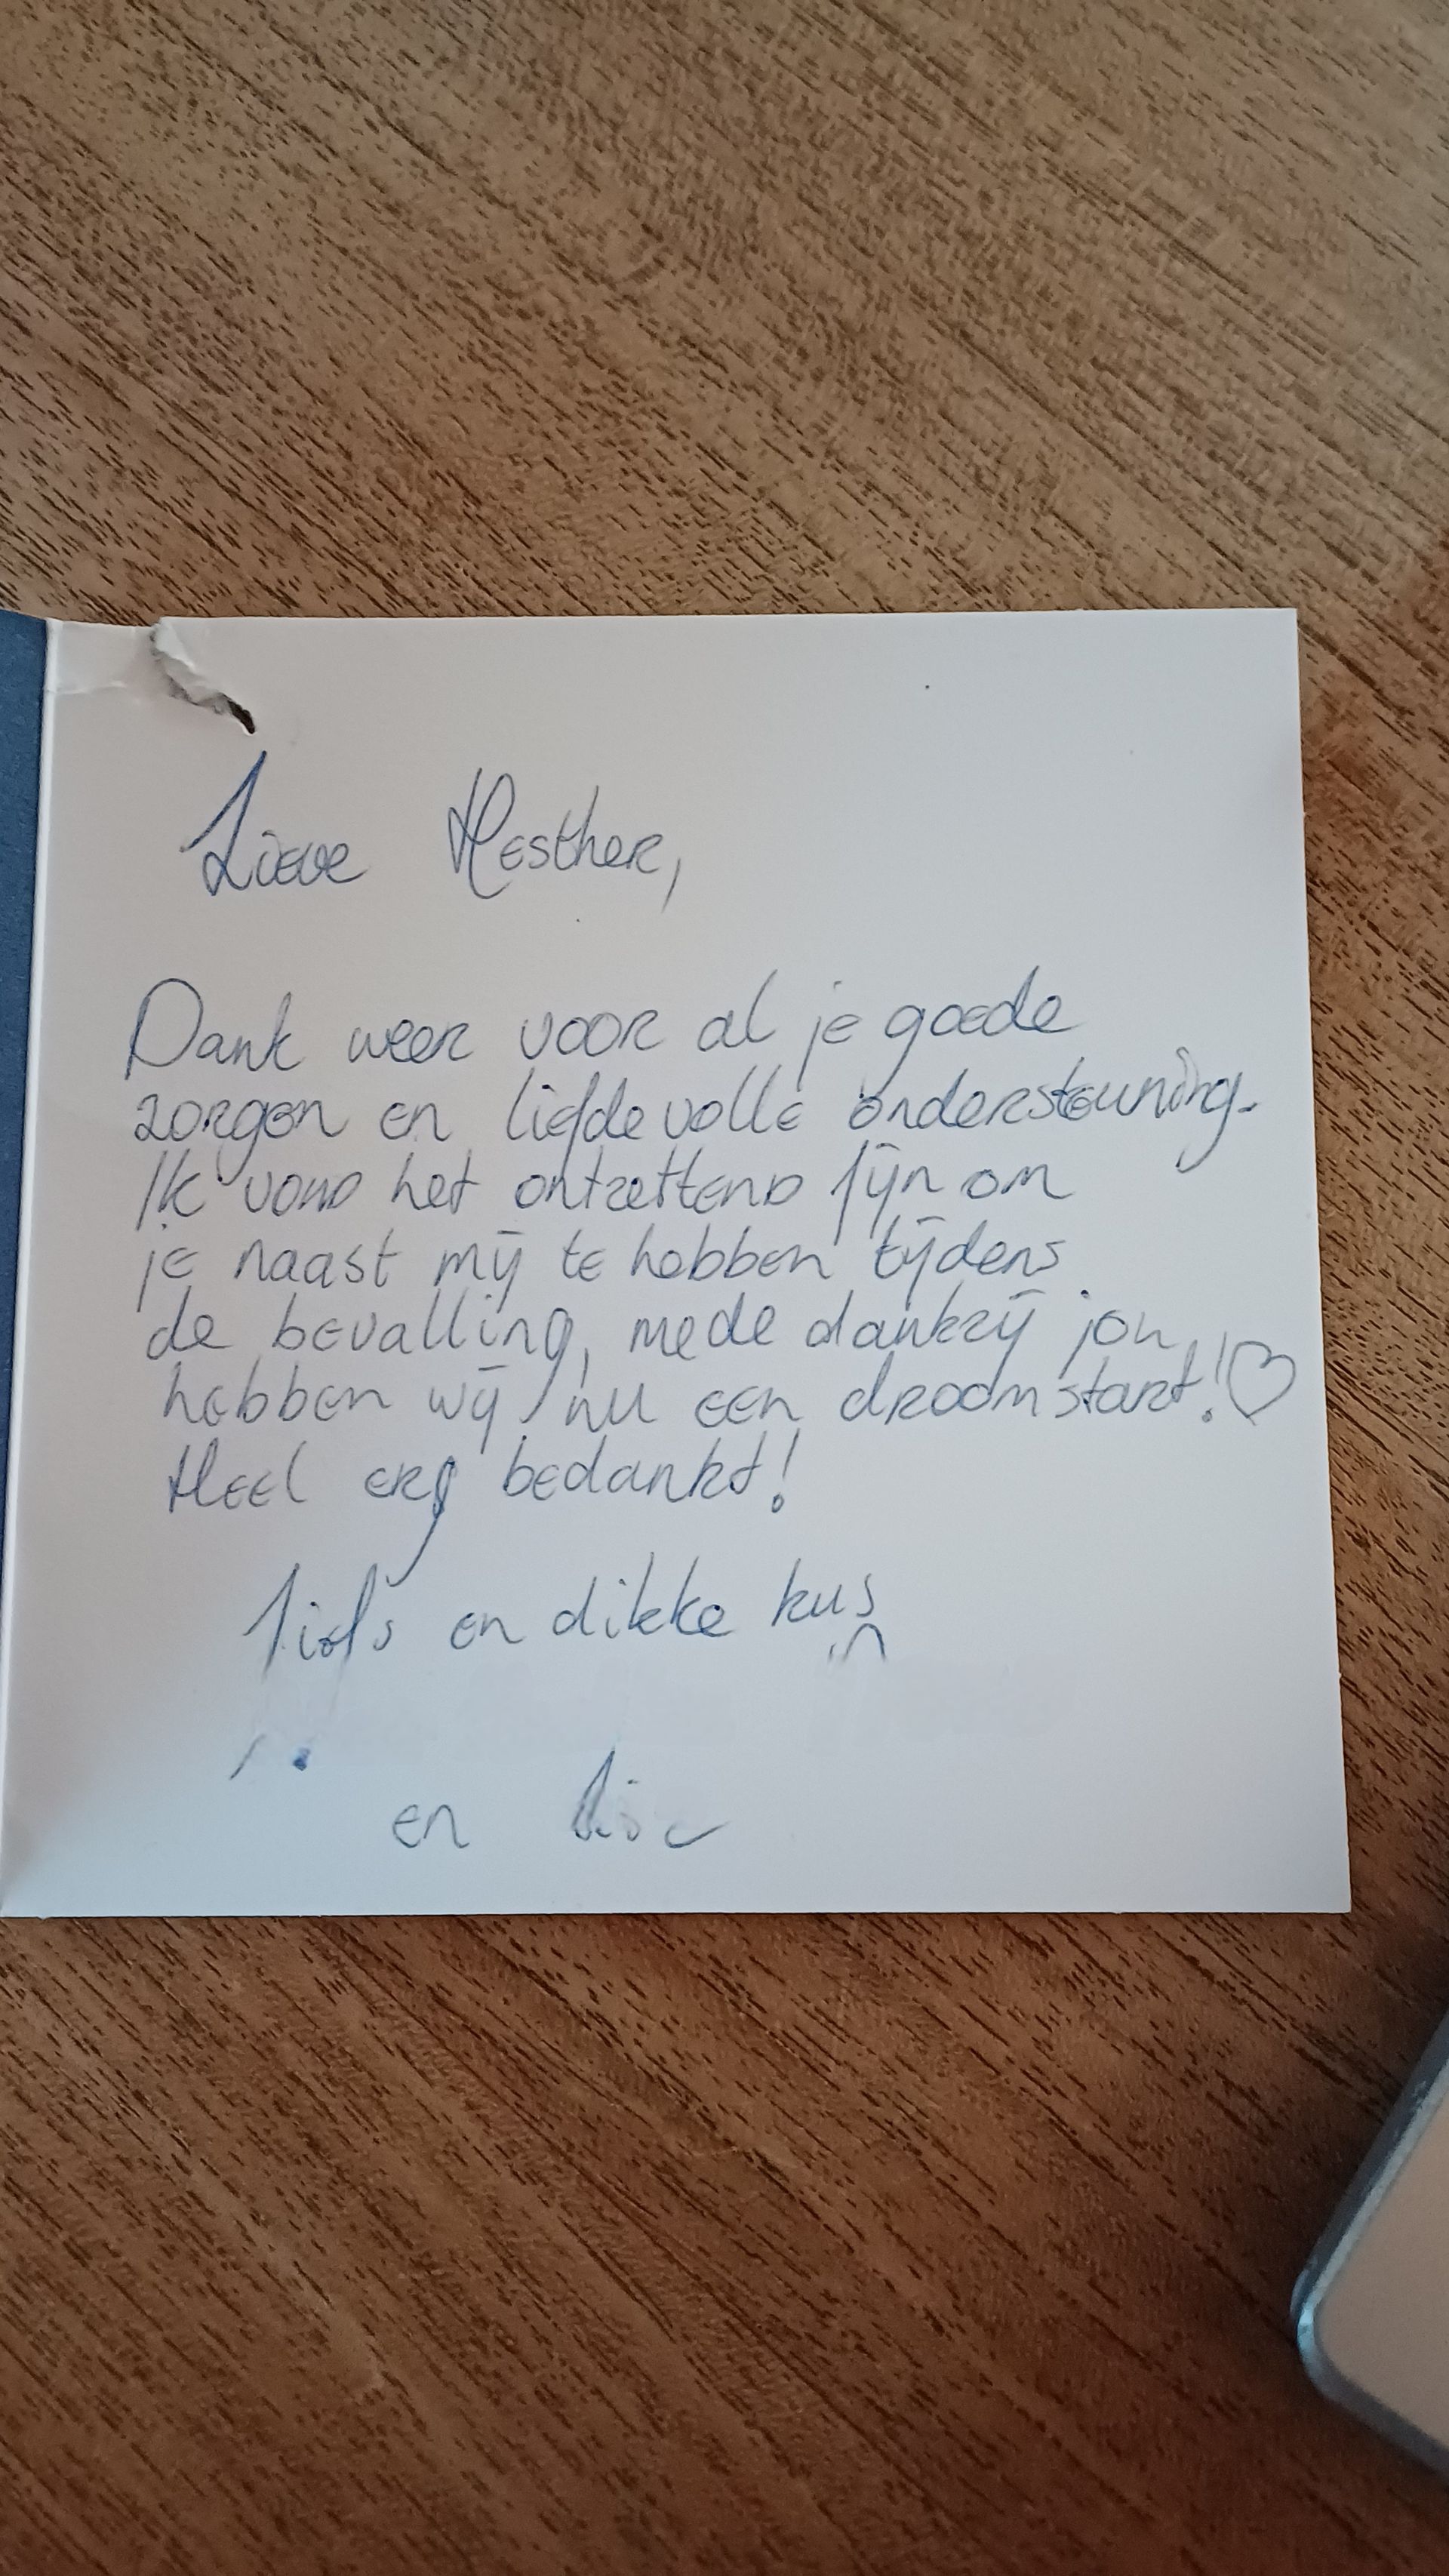 Lieve Hesther,
Dank weer voor al je goede
zorgen en liefdevolle ondersteuning.
Ik vond het ontzettend fijn om
je naast mij te hebben tijdens
de bevalling, mede dankzij jou
hebben wij nu een droomstart!♡
Heel erg bedankt!
Liefs en dikke kus
en